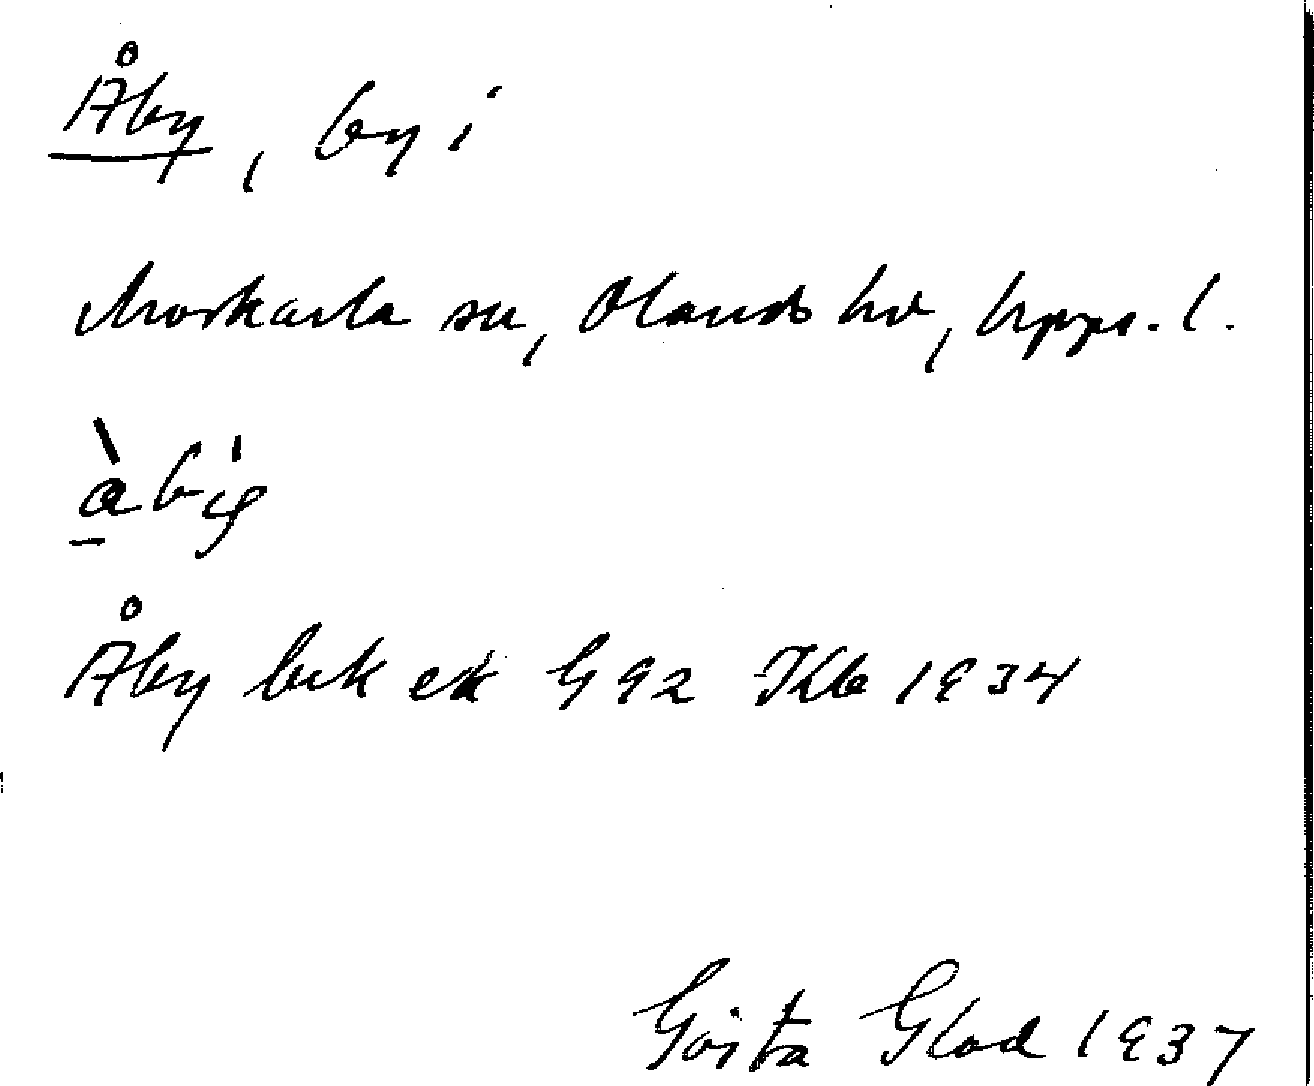 Åby, by i
Morkarla sn, Olands hd, Upps. l.
Åby bebk ek G 92 Kb 1934
Gösta Glad 1937